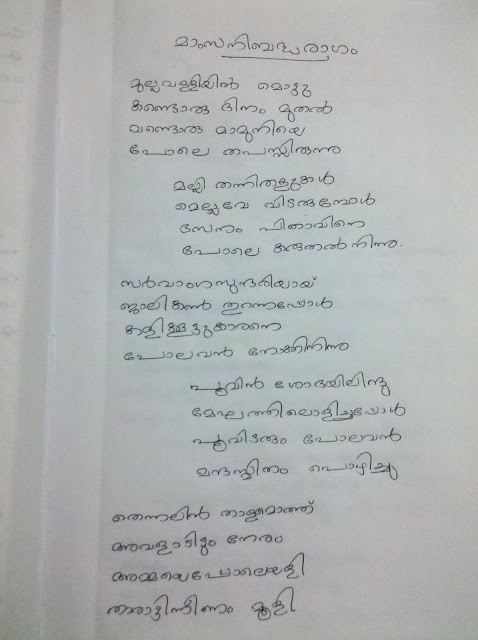 മാംസനിബദ്ധരാഗം
മുല്ലവള്ളിയിൽ മൊട്ടു
കണ്ടൊരു ദിനം മുതൽ
വണ്ടൊരു മാമുനിയെ
പോലെ തപസ്സിരുന്നു
മല്ലി തന്നിതളുകൾ
മെല്ലവേ വിടരുമ്പോൾ
സേനം പിതാവിനെ
പോലെ കരുതൽ നിന്നു.
സർവാംഗസുന്ദരിയായ്
ജാലികൺ തുറന്നപ്പോൾ
കളിക്കൂട്ടുകാരനെ
പോലവൻ നോക്കിനിന്നു
പൂവിൻ ശോഭയിലിന്ദു
മേഘത്തിലൊളിച്ചപ്പോൾ
പൂവിടരും പോലവൻ
മന്ദസ്മിതം പൊഴിച്ചു
തെന്നലിൻ താളമൊത്ത്
അവളാടിടും നേരം
അമ്മയെപ്പോലെയളി
താരാട്ടിന്നീണം മൂളി